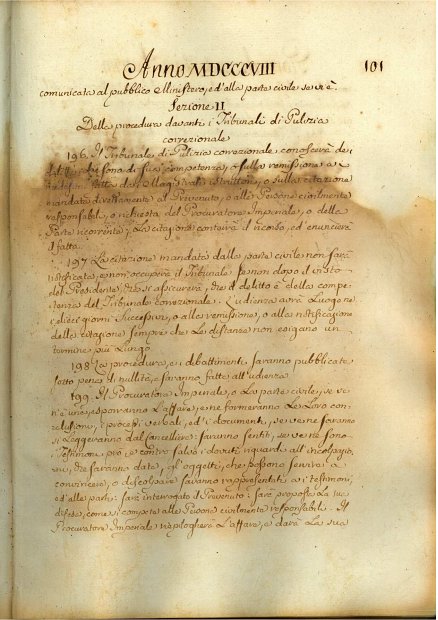 Anno MDCCCVIII
101
comunicata al pubblico Ministero, ed alla parte civile se vi è.
Sezione II
Della procedura davanti i Tribunali di Pulizia
correzionale
196. Il Tribunale di Pulizia correzionale conoscerà de
litti che sono di sua competenza, o sulla remissione
fatta dai Magistrati o sulla citazione
mandata direttamente al Prevenuto, o alle Persone civilmente
responsabili, a richiesta del Procuratore Imperiale, o della
Parte ricorrente; La citazione conterrà il ricorso, ed enuncierà
il fatto.
197. La citazione mandata dalla parte civile non sarà
notificata, e non occuperà il Tribunale se non dopo il visto
del Presidente, che si assicurerà, che il delitto è della compe
tenza del Tribunale correzionale. L'udienza avrà Luogo ne
i dieci giorni Successivi, o alla remissione, o alla notificazione
della citazione sempre che Le distanze non esigano un
termine più Lungo
198. La procedura, e i dibattimenti saranno pubblicati
sotto pena di nullità, saranno fatte all'udienza
199. Il Procuratore Imperiale, o La parte civile, se ve
n'è una, esporranno L'affare, e ne formeranno Le Loro con
clusioni, i processi verbali, ed i documenti, se ve ne saranno
si Leggeranno dal Cancelliere: saranno sentiti, se ve ne sono
Testimoni pro, e contro salvi i dovuti riguardi all'incolpazio
ni, che saranno date, gli oggetti, che possono servire a
convincere, o discolpare saranno rappresentati a i testimoni,
ed alle parti: sarà interrogato il Prevenuto: sarà proposta La sua
difesa, come si compete alle Persone civilmente responsabili. Il
Procuratore Imperiale riepilogherà L'affare, e darà La sua